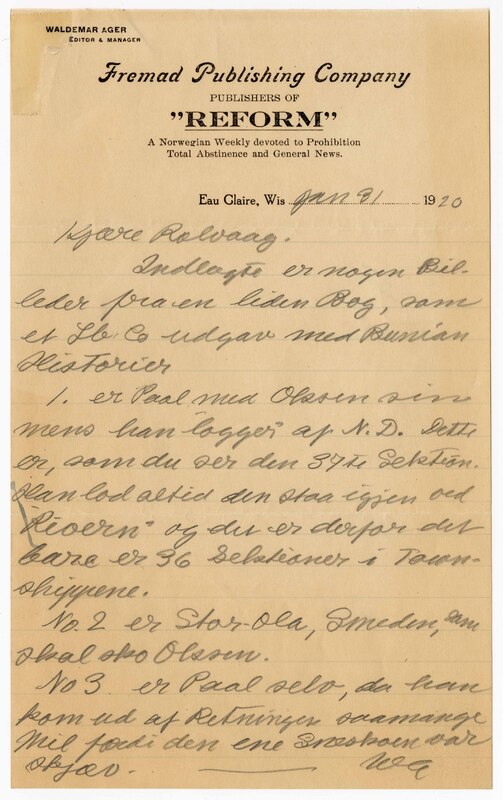 WALDEMAR AGER
EDITOR & MANAGER
Fremad Publishing Company
PUBLISHERS OF
"REFORM"
A Norwegian Weekly devoted to Prohibition
Total Abstinence and General News.
Eau Claire, Wis Jan 31 1920
Kjære Rolvaag.
Indlagte er nogen Bil-
leder fra en liden Bog, som
et Lb. Co udgav med Bunian
Historier
1. er Paal med Oksen sin
mens han "logger" af N.D. Dette
er, som du ser den 37te Sektion.
Han lod altid den staa igjen ved
"Rivern" og det er derfor det
bare er 36 Sektioner i Town-
shippene.
No. 2 er Stor-Ola, Smeden, som
skal sko Oksen.
No 3 er Paal selv, da han
kom ud af Retningen saamange
Mil fordi den ene Sneskoen var
skjæv. WA